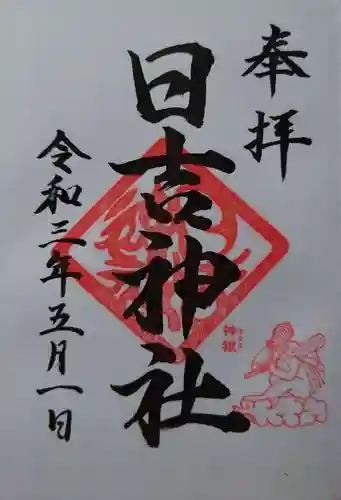 奉拝
日吉神社
令和三年五月一日
神猿